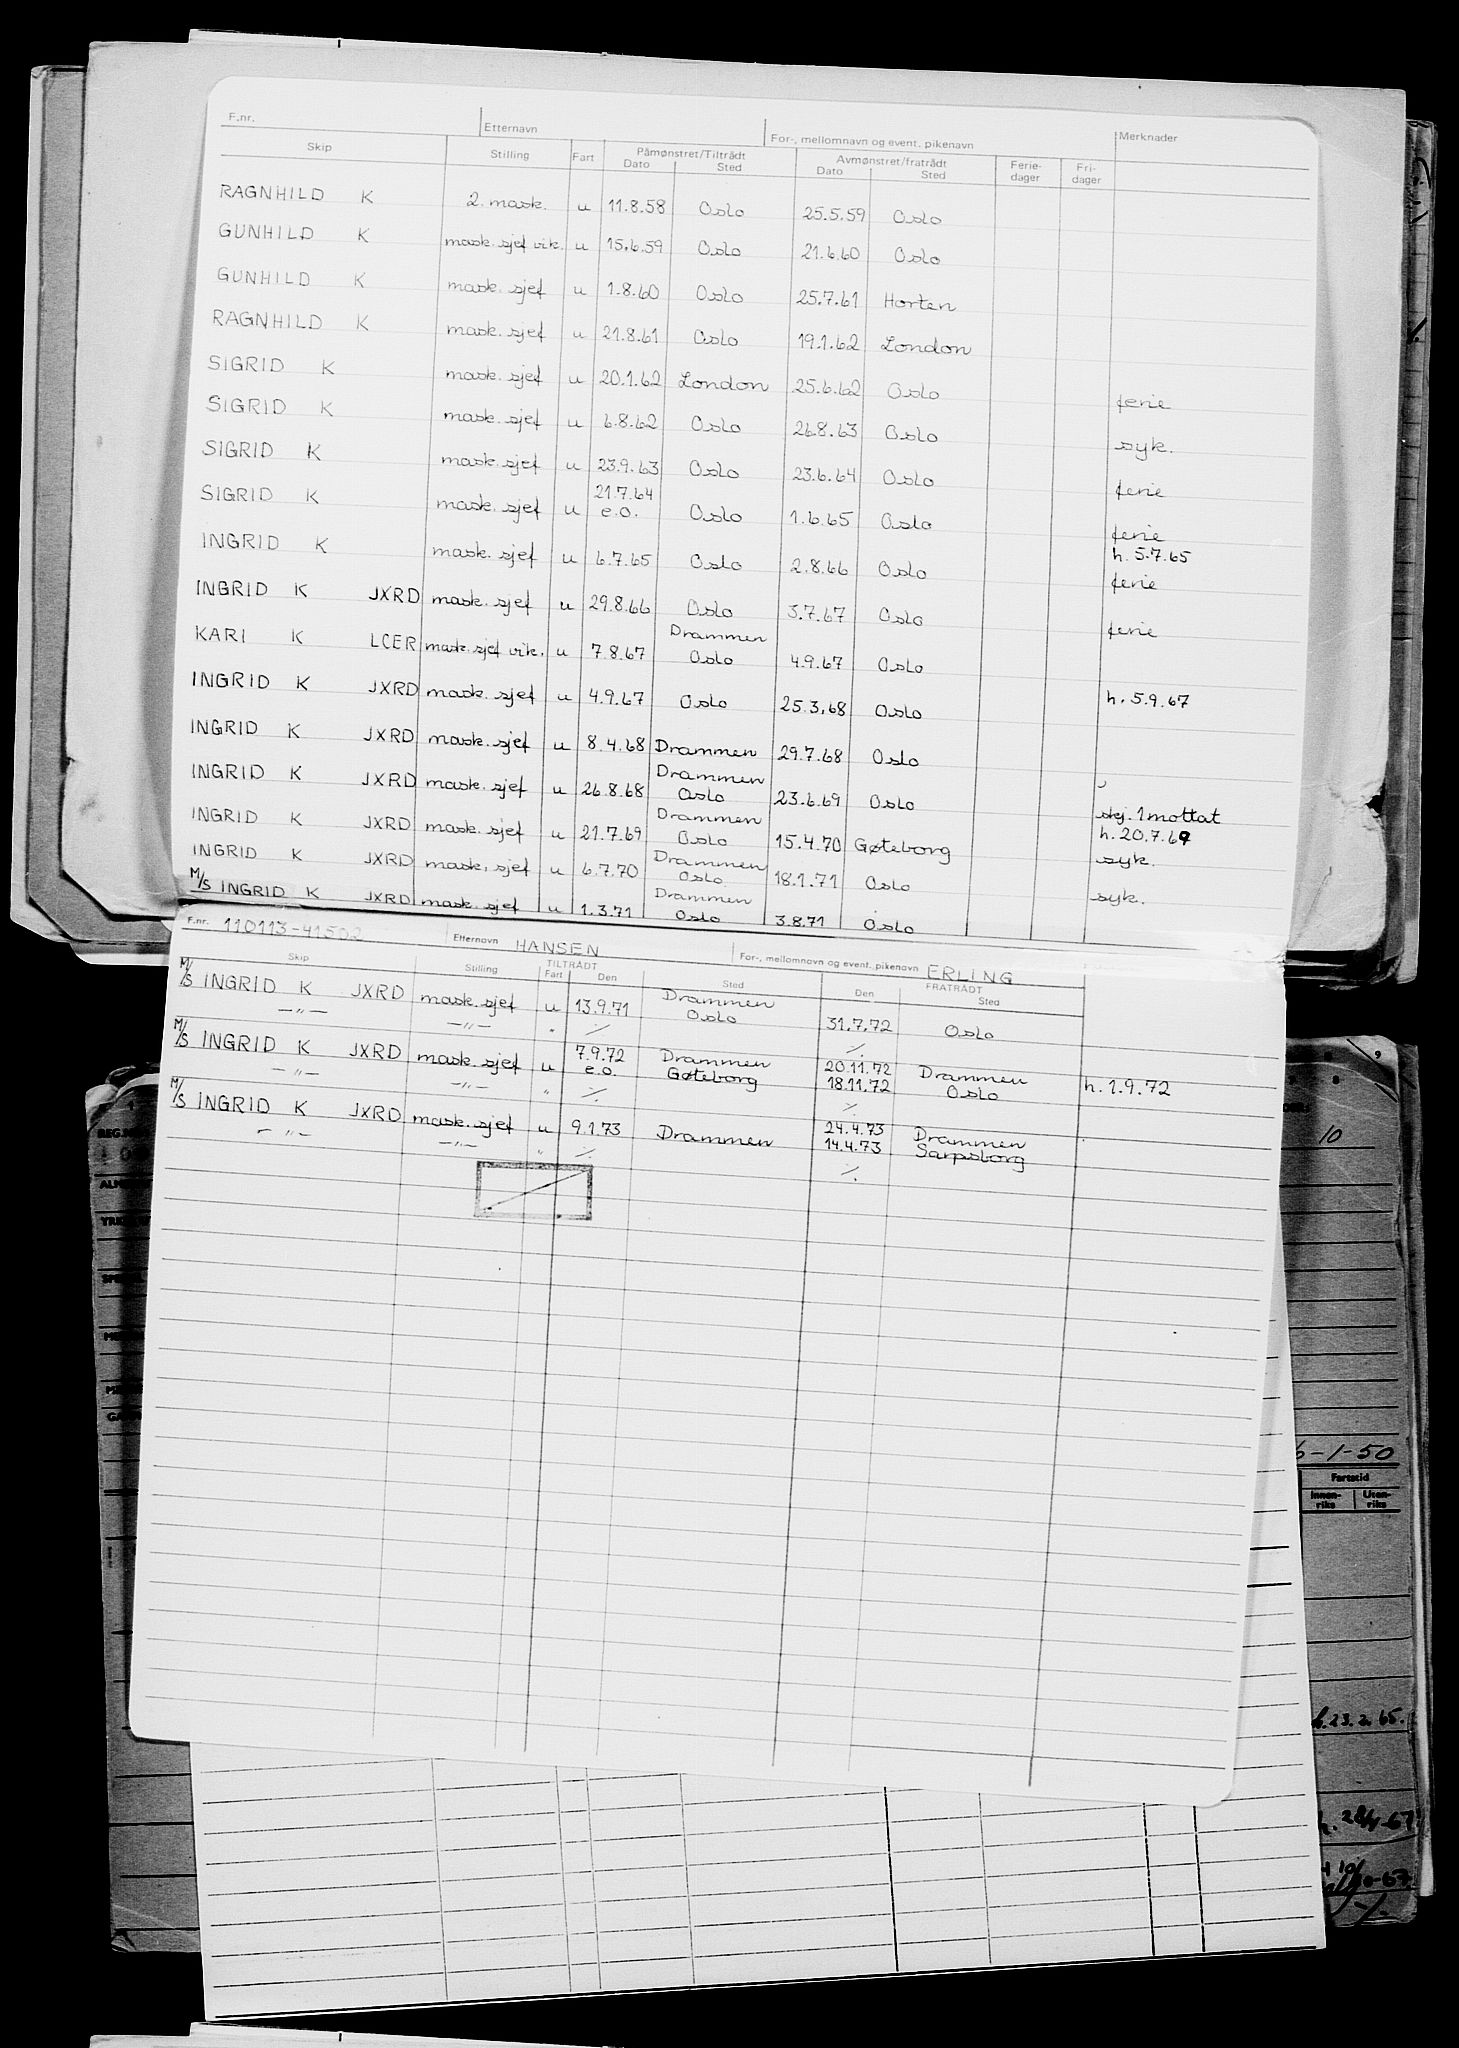 F.nr. Etternavn For-, mellomnavn og event. pikenavn Merknader
Skip Stilling Fart Påmønstret/Tiltrådt Avmønstret/fratrådt Ferie-dager Fri-dager
Dato Sted Dato Sted
RAGNHILD K 2. mask. u 11.8.58 Oslo 25.5.59 Oslo
GUNHILD K mask. sjef vik. u 15.6.59 Oslo 21.6.60 Oslo
GUNHILD K mask. sjef u 1.8.60 Oslo 25.7.61 Horten
RAGNHILD K mask. sjef u 21.8.61 Oslo 19.1.62 London
SIGRID K mask. sjef u 20.1.62 London 25.6.62 Oslo ferie
SIGRID K mask. sjef u 6.8.62 Oslo 26.8.63 Oslo syk.
SIGRID K mask. sjef u 23.9.63 Oslo 23.6.64 Oslo ferie
SIGRID K mask. sjef u 21.7.64 e.o. Oslo 1.6.65 Oslo ferie
INGRID K mask. sjef u 6.7.65 Oslo 2.8.66 Oslo h. 5.7.65 ferie
INGRID K JXRD mask. sjef u 29.8.66 Oslo 3.7.67 Oslo ferie
KARI K LCER mask. sjef vik. u 7.8.67 Drammen Oslo 4.9.67 Oslo
INGRID K JXRD mask. sjef u 4.9.67 Oslo 25.3.68 Oslo h. 5.9.67
INGRID K JXRD mask. sjef u 8.4.68 Drammen 29.7.68 Oslo
INGRID K JXRD mask. sjef u 26.8.68 Drammen Oslo 23.6.69 Oslo skj. 1 mottat
INGRID K JXRD mask. sjef u 21.7.69 Drammen Oslo 15.4.70 Gøteborg h. 20.7.69 syk.
INGRID K JXRD mask. sjef u 6.7.70 Drammen Oslo 18.1.71 Oslo syk.
M/S INGRID K JXRD mask. sjef u 1.3.71 Drammen Oslo 3.8.71 Oslo
F.nr. 110113-41502 Etternavn HANSEN For-, mellomnavn og event. pikenavn ERLING
Skip Stilling TILTRÅDT Fart Den Sted FRATRÅDT Den Sted
M/S INGRID K JXRD mask. sjef u 13.9.71 Drammen Oslo 31.7.72 Oslo
—"— —"— " ·/. ·/.
M/S INGRID K JXRD mask. sjef u 7.9.72 e.o. Drammen Gøteborg 20.11.72 18.11.72 Drammen Oslo h. 1.9.72
—"— —"— " ·/. ·/.
M/S INGRID K JXRD mask. sjef u 9.1.73 Drammen 24.4.73 14.4.73 Drammen Sarpsborg
—"— —"— " ·/. ·/.
10
6-1-50
Fartstid
Innen-riks Uten-riks
23.2.65.